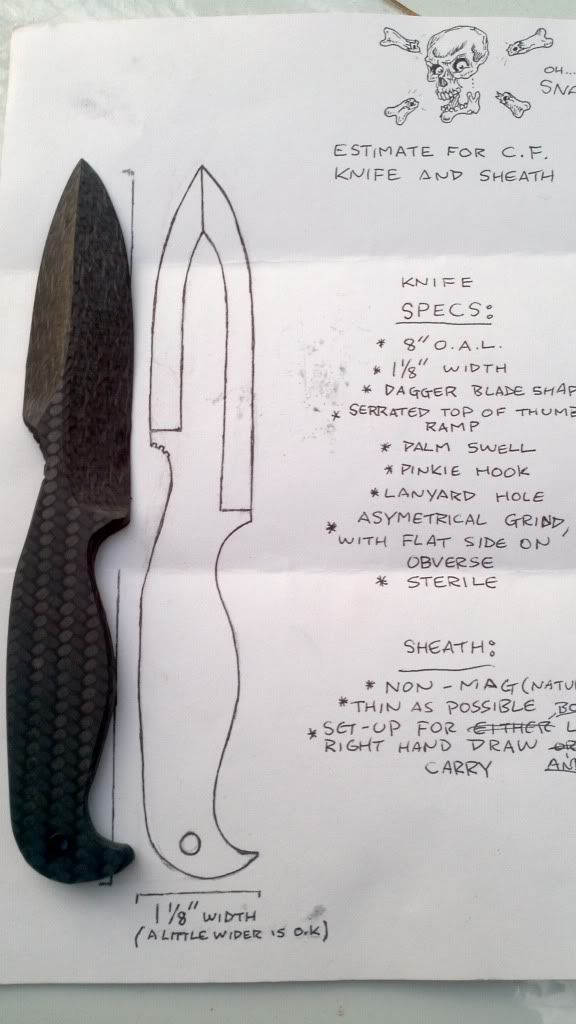 OH...
ESTIMATE FOR C.F.
KNIFE AND SHEATH
KNIFE
SPECS:
* 8" O.A.L.
* 1 1/8" WIDTH
* DAGGER BLADE SHAP
* SERRATED TOP OF THUMB
RAMP
* PALM SWELL
* PINKIE HOOK
* LANYARD HOLE
* ASYMETRICAL GRIND,
WITH FLAT SIDE ON
OBVERSE
* STERILE
SHEATH:
* NON-MAG (NATU
* THIN AS POSSIBLE
* SET-UP FOR EITHER L
RIGHT HAND DRAW OR
CARRY AN
1 1/8" WIDTH
(A LITTLE WIDER IS O.K)